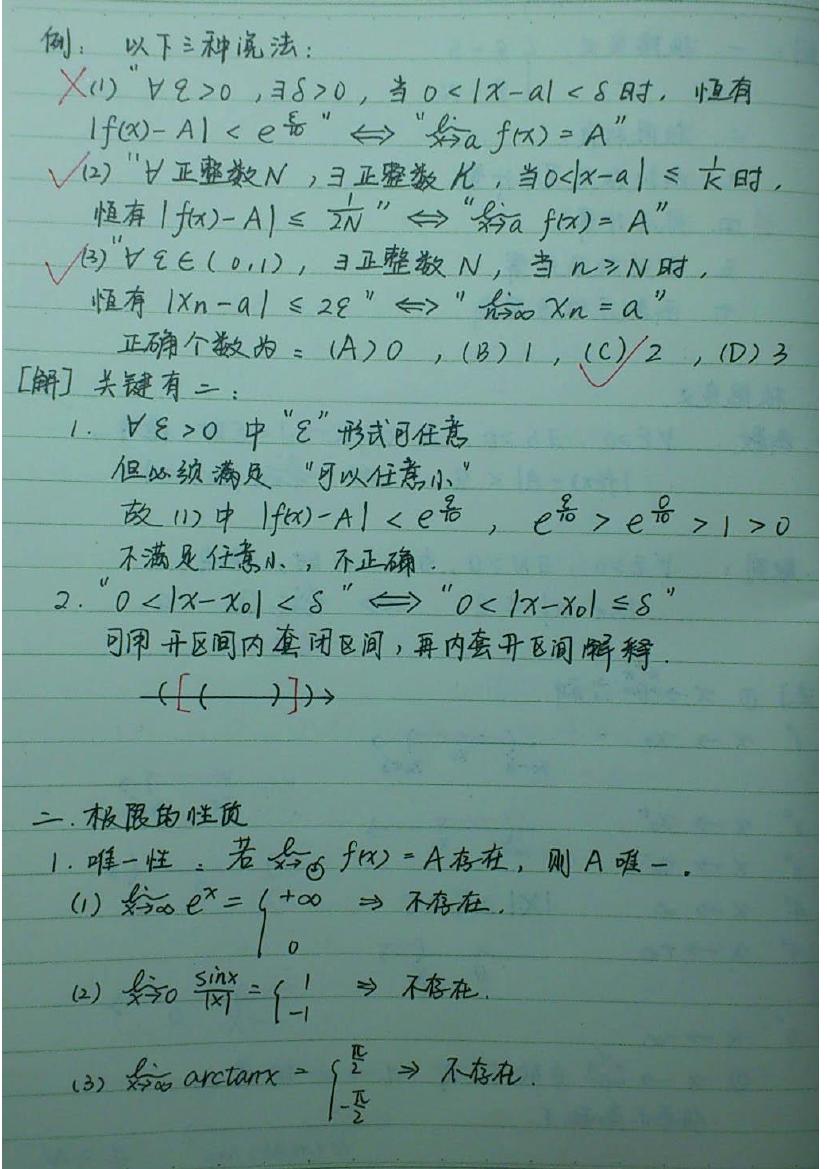 例: 以下三种说法:
×(1) "∀ε>0, ∃δ>0, 当 0<|x-a|<δ时, 恒有
|f(x)-A| < e^{ε/10}" ⟺ "lim_{x→a} f(x) = A"
✓(2) "∀正整数N, ∃正整数K, 当0<|x-a| ≤ 1/K时,
恒有|f(x)-A| ≤ 1/2N" ⟺ "lim_{x→a} f(x) = A"
✓(3) "∀ε∈(0,1), ∃正整数N, 当n≥N时,
恒有|Xn-a| ≤ 2ε" ⟺ "lim_{n→∞} Xn = a"
正确个数为: (A) 0, (B) 1, (C)✓ 2, (D) 3
[解] 关键有二:
1. ∀ε>0 中 "ε" 形式可任意
但必须满足 "可以任意小"
故(1)中 |f(x)-A| < e^{ε/10}, e^{ε/10} > e^{0/10} > 1 > 0
不满足任意小, 不正确.
2. "0<|x-x0|<δ" ⟺ "0<|x-x0|≤δ"
可用开区间内套闭区间, 再内套开区间解释.
([( )])→
二. 极限的性质
1. 唯一性: 若 lim_{x→} f(x) = A存在, 则A唯一.
(1) lim_{x→∞} e^x = { +∞ ⇒ 不存在.
0
(2) lim_{x→0} sinx/|x| = { 1 ⇒ 不存在.
-1
(3) lim_{x→∞} arctanx = { π/2 ⇒ 不存在.
-π/2